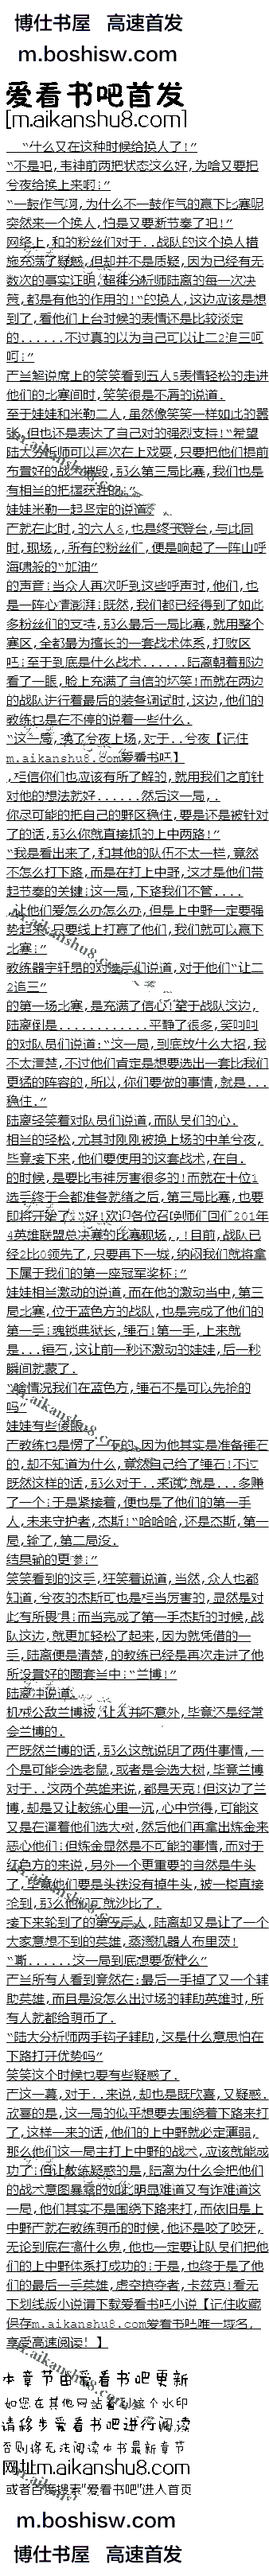 博仕书屋 高速首发
m.boshisw.com
爱看书吧首发
[m.aikanshu8.com]
“什么又在这种时候给换人了!”
“不是吧,韦神前两把状态这么好,为啥又要把
兮夜给换上来啊!”
“一鼓作气啊,为什么不一鼓作气的赢下比赛呢
突然来一个换人,怕是又要断节奏了吧!”
网络上,和的粉丝们对于..战队的这个换人措
施充满了疑惑,但却并不是质疑,因为已经有无
数次的事实证明,超神分析师陆离的每一次决
策,都是有他的作用的!“的换人,这边应该是想
到了,看他们上台时候的表情还是比较淡定
的......不过真的以为自己可以让二2追三呵
呵!”
产兰解说席上的笑笑看到五人5表情轻松的走进
他们的比赛间时,笑笑很是不屑的说道.
至于娃娃和米勒二人,虽然像笑笑一样如此的嚣
张,但也还是表达了自己对的强烈支持!“希望
陆大分析师可以再次在上戏耍,只要把他们提前
布置好的战术摧毁,那么第三局比赛,我们也是
有相当的把握获胜的!”
娃娃米勒一起坚定的说道.
产就在此时,的六人6,也是终于登台,与此同
时,现场,,所有的粉丝们,便是响起了一阵山呼
海啸般的“加油”
的声音!当众人再次听到这些呼声时,他们,也
是一阵心情澎湃!既然,我们都已经得到了如此
多粉丝们的支持,那么最后一局比赛,就用整个
赛区,全都最为擅长的一套战术体系,打败区
吧!至于到底是什么战术......陆离朝着那边
看了一眼,脸上充满了自信的坏笑!而就在两边
的战队进行着最后的装备调试时,这边,他们的
教练也是在不停的说着一些什么.
“这一局,换了兮夜上场,对于..兮夜【记住
m.aikanshu8.com爱看书吧】
,相信你们也应该有所了解的,就用我们之前针
对他的想法就好......然后这一局,.
你尽可能的把自己的野区稳住,要是还是被针对
了的话,那么你就直接抓的上中两路!”
“我是看出来了,和其他的队伍不太一样,竟然
不怎么打下路,而是在打上中野,这才是他们带
起节奏的关键!这一局,下路我们不管....
,让他们爱怎么办怎么办,但是上中野一定要强
势起来,只要线上打赢了他们,我们就可以赢下
比赛!”
教练器宇轩昂的对选手们说道,对于他们“让二
2追三”
的第一场比赛,是充满了信心!至于战队这边,
陆离倒是............平静了很多,笑呵呵
的对队员们说道:“这一局,到底放什么大招,我
不太清楚,不过他们肯定是想要选出一套比我们
更猛的阵容的,所以,你们要做的事情,就是...
稳住.”
陆离轻笑着对队员们说道,而队员们的心.
相当的轻松,尤其时刚刚被换上场的中单兮夜,
毕竟接下来,他们要使用的这套战术,在自.
的时候,是要比韦神厉害很多的!而就在十位1
选手终于全都准备就绪之后,第三局比赛,也要
即将开始了!“好!欢迎各位召唤师们回们201年
4英雄联盟总决赛的比赛现场,,!目前,战队已
经2比0领先了,只要再下一城,纳闷我们就将拿
下属于我们的第一座冠军奖杯!”
娃娃相当激动的说道,而在他的激动当中,第三
局比赛,位于蓝色方的战队,也是完成了他们的
第一手!魂锁典狱长,锤石!第一手,上来就
是...锤石,这让前一秒还激动的娃娃,后一秒
瞬间就蒙了.
“啥情况我们在蓝色方,锤石不是可以先抢的
吗”
娃娃有些傻眼.
产教练也是愣了一下的,因为他其实是准备锤石
的,却不知道为什么,竟然自己给了锤石!不过
既然这样的话,那么对于..来说,就是...多赚
了一个!于是紧接着,便也是了他们的第一手
人,未来守护者,杰斯!“哈哈哈,还是杰斯,第一
局,输了,第二局没.
结果输的更惨!”
笑笑看到的这手,狂笑着说道,当然,众人也都
知道,兮夜的杰斯可也是相当厉害的,显然是对
此有所畏惧!而当完成了第一手杰斯的时候,战
队这边,就更加轻松了起来,因为就凭借的一
手,陆离便是清楚,的教练已经是再次走进了他
所设置好的圈套当中!“兰博!”
陆离冲说道.
机械公敌兰博被,让人并不意外,毕竟还是经常
会兰博的.
产既然兰博的话,那么这就说明了两件事情,一
个是可能会选老鼠,或者是会选大树,毕竟兰博
对于..这两个英雄来说,都是天克!但这边了兰
博,却是又让教练心里一沉,心中觉得,可能这
又是在逼着他们选大树,然后他们再拿出炼金来
恶心他们!但炼金显然是不可能的事情,而对于
红色方的来说,另外一个更重要的自然是牛头
了,毕竟他们要是头铁没有掉牛头,被一楼直接
抢到,那么他们可就沙比了.
接下来轮到了的第五三人,陆离却又是让了一个
大家意想不到的英雄,蒸汽机器人布里茨!
“嘶......这一局到底想要做什么”
产兰所有人看到竟然在:最后一手掉了又一个辅
助英雄,而且是没怎么出过场的辅助英雄时,所
有人就都给萌币了.
“陆大分析师两手钩子辅助,这是什么意思怕在
下路打开优势吗”
笑笑这个时候也要有些疑惑了.
产这一幕,对于..来说,却也是既欣喜,又疑惑.
欣喜的是,这一局的似乎想要去围绕着下路来打
了,这样一来的话,他们的上中野就必定薄弱,
那么他们这一局主打上中野的战术,应该就能成
功了!但让教练疑惑的是,陆离为什么会把他们
的战术意图暴露的如此明显难道又有诈难道这
一局,他们其实不是围绕下路来打,而依旧是上
中野产就在教练萌币的时候,他还是咬了咬牙,
无论到底在搞什么鬼,他也一定要让队员们把他
们的上中野体系打成功的!于是,也终于是了他
们的最后一手英雄,虚空掠夺者,卡兹克!看无
下划线版小说请下载爱看书吧小说【记住收藏
保存m.aikanshu8.com爱看书吧唯一域名,
享受高速阅读!】
本章节由爱看书吧更新
如您在其他网站看到这个水印
请移步爱看书吧进行阅读
否则将无法阅读本书最新章节
网址m.aikanshu8.com
或者百度搜索“爱看书吧”进入首页
m.boshisw.com
博仕书屋 高速首发